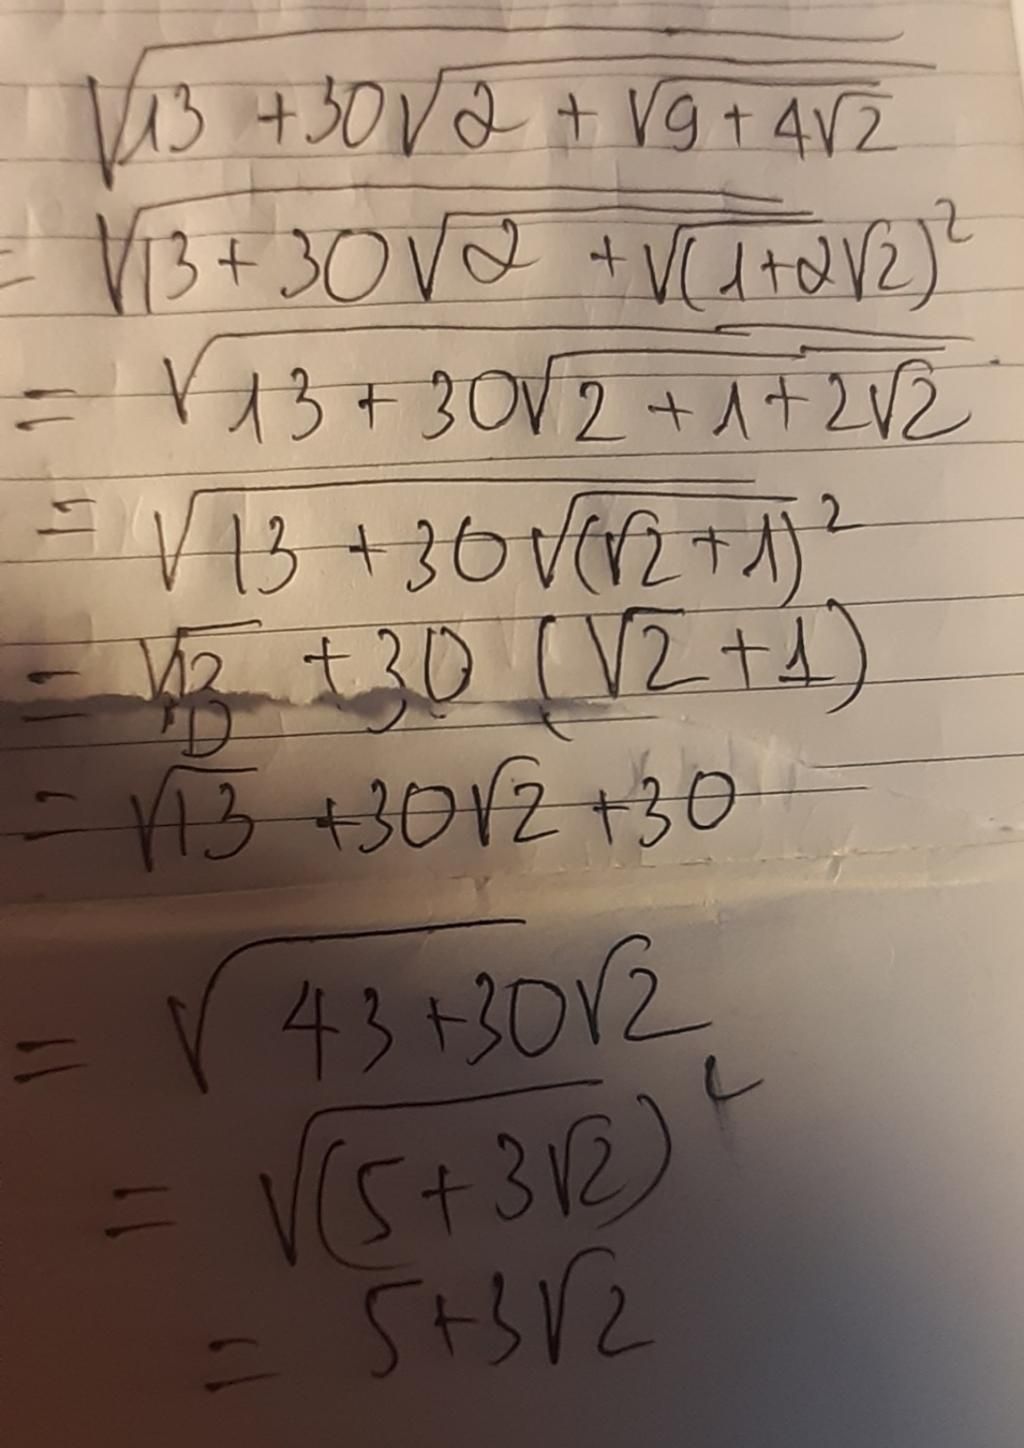 √13 + 30√2 + √9 + 4√2
= √13 + 30√2 + √(1+2√2)²
= √13 + 30√2 + 1 + 2√2
= √13 + 30√(√2 + 1)²
= √13 + 30 (√2 + 1)
= √13 + 30√2 + 30
= √43 + 30√2
= √(5 + 3√2)²
= 5 + 3√2